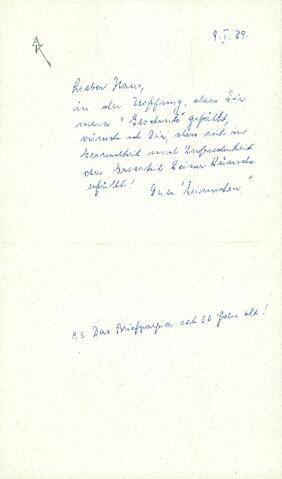 9.I.89.
Lieber Hans,
in der Hoffnung, dass Dir
mein "Geschenk" gefällt,
wünsch ich Dir, dass sich in
Gesundheit und Zufriedenheit
das Deiner Wünsche
erfüllt!
Dein
P.S Das Briefpapier ist 50 Jahre alt!